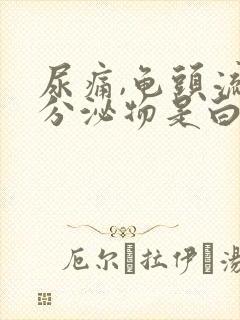 尿痛,龟頭流
分泌物是白
厄尔 拉伊 湯